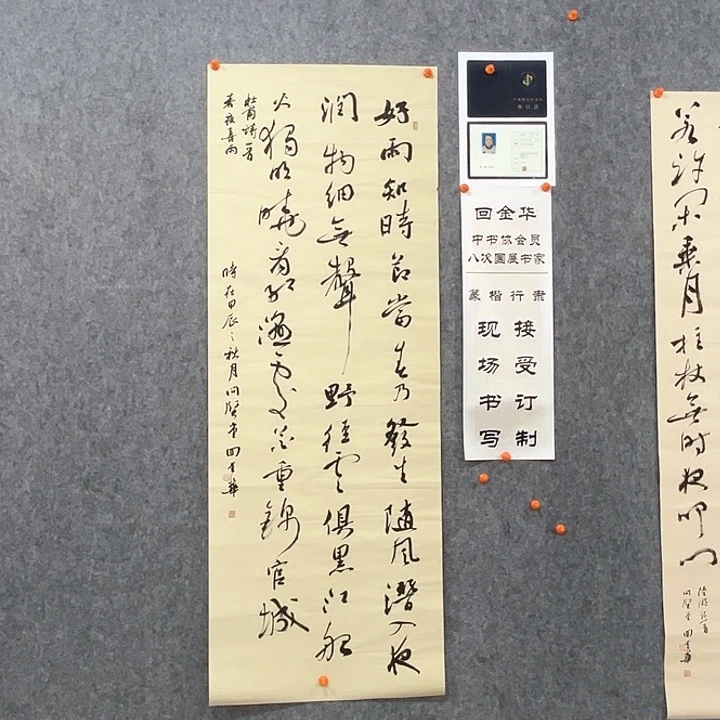 好雨知時節當春乃發生随風潛入夜
潤物細無聲野徑雲俱黑江船
火獨明曉看紅濕處花重錦官城
杜甫詩一首
春夜喜雨
時在甲辰之秋月问賢堂回金華
回金华
中书协会员
八次国展书家
篆楷行隶
接受订制
现场书写
若許閑乘月拄杖無時夜叩門
问賢堂回金華